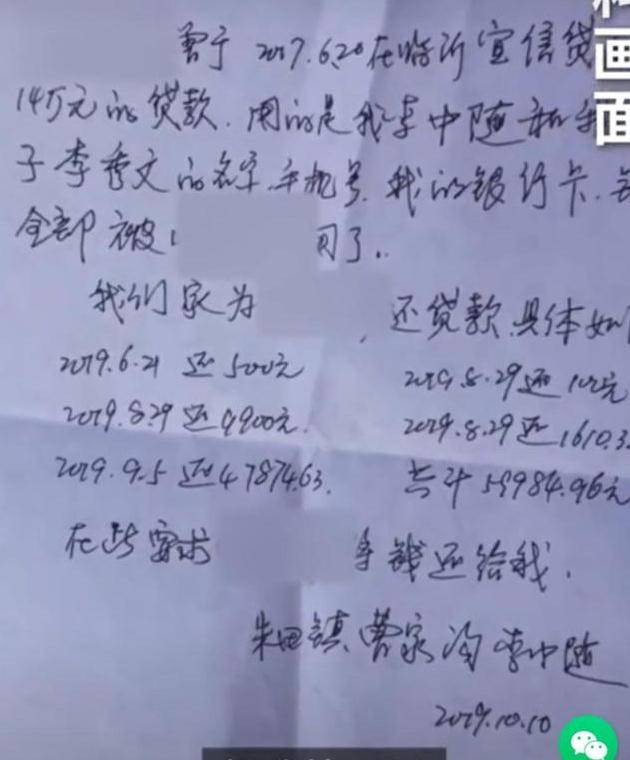 画
面
曾于 2017.6.20在临沂宜信贷
14万元的贷款.用的是我李中随和
子李秀文的名字.手机号.我的银行卡.
全部被 了.
我们家为 ,还贷款.具体如
2019.6.21 还500元 2019.8.29还100元
2019.8.29 还9900元. 2019.8.29还1610.3
2019.9.5 还47874.63. 共计59984.96元
在此要求 钱还给我.
朱田镇 曹家沟 李中随
2019.10.10